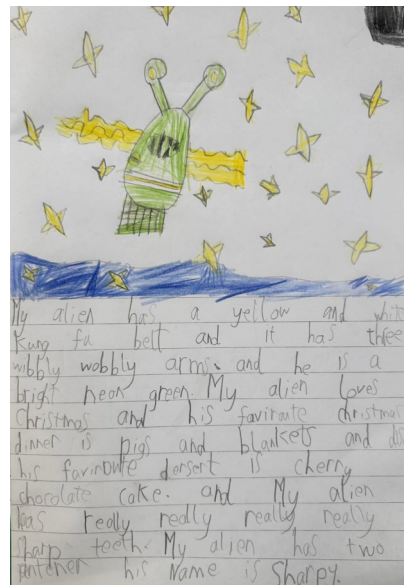 My alien has a yellow and white
Kung fu belt and it has three
wibbly wobbly arms. and he is a
bright neon green. My alien loves
christmas and his faviraute christmas
dinner is pigs and blankets and
his faviroute dersert is cherry
chocolate cake. and My alien
has really really really really
sharp teeth. My alien has two
his Name is Sharpy